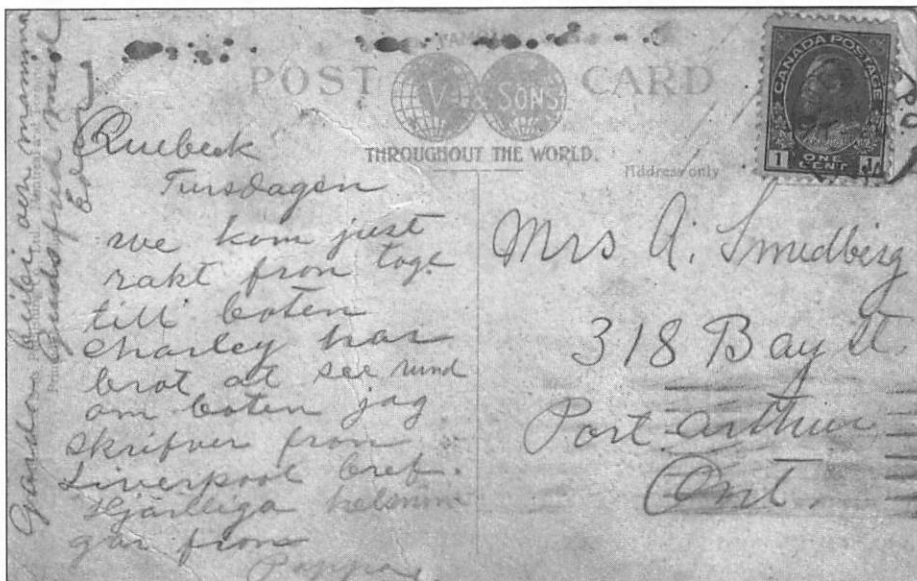 POST CARD
V & SONS
THROUGHOUT THE WORLD.
Address only
CANADA POSTAGE
1 ONE CENT 1
Quebeck
Tursdagen
we kom just
rakt from toge
till boten
Charley har
brot at see rund
om boten jag
skrifver from
Liverpool bref.
Hjärlliga helsnin
gar from
Pappa
Gordon bibi och mamma
Guds frid med
Eder
Mrs A. Smedberg
318 Bay St.
Port Arthur
Ont.